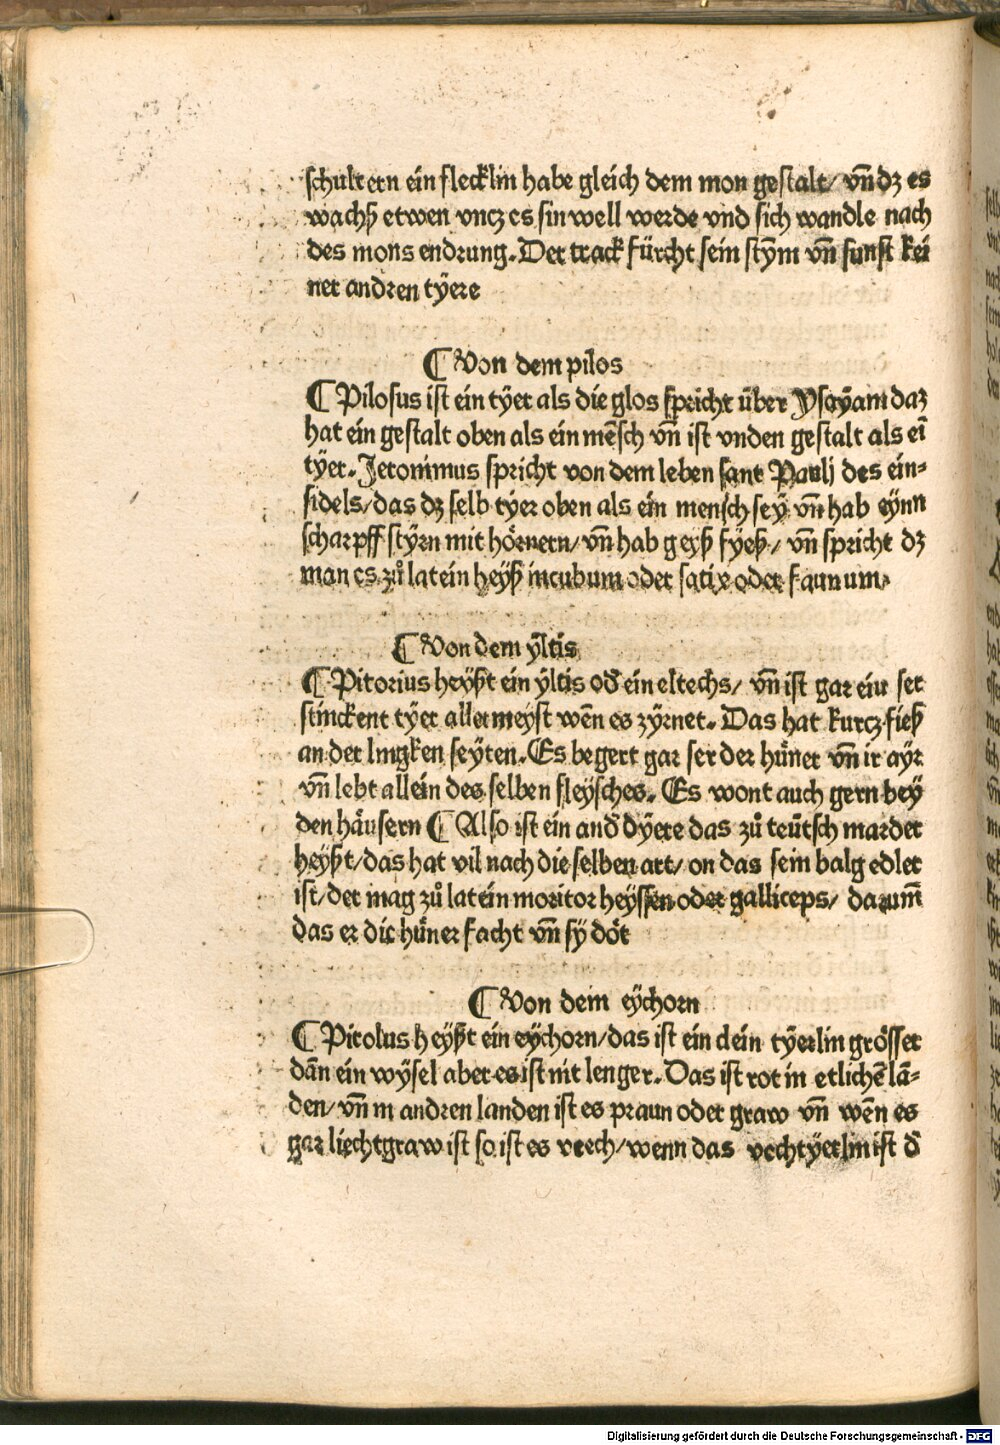 schultern ein flecklin habe gleich dem mon gestalt/ vn̄ dz es
wachß etwen vncz es sin well werde vnd sich wandle nach
des mons endrung. Der track fürcht sein stȳm vn̄ sunst kei
ner andren tÿere
¶ Von dem pilos
¶ Pilosus ist ein tÿer als die glos spricht über Ysaÿam daz
hat ein gestalt oben als ein mēsch vn̄ ist vnden gestalt als eī
tÿer. Jeronimus spricht von dem leben sant Pauli des ein-
sidels/ das dz selb tÿer oben als ein mensch seÿ vn̄ hab eÿnn
scharpff stÿrn mit hörnern/ vn̄ hab geyß fÿeß/ vn̄ spricht dz
man es zů latein heÿß incubum oder satir oder faunum.
¶ Von dem ÿltis
¶ Pitorius heÿßt ein ÿltis od̄ ein eltechs/ vn̄ ist gar ein ser
stinckent tÿer aller meyst wēn es zÿrnet. Das hat kurcz fieß
an der lingken seÿten. Es begert gar ser der hüner vn̄ ir aÿr
vn̄ lebt allein des selben fleÿsches. Es wont auch gern beÿ
den häusern ¶ Also ist ein and̄ dÿere das zů teütsch marder
heÿßt/ das hat vil nach die selben art/ on das sein balg edler
ist/ der mag zů latein moritor heÿssen oder galliceps/ darum̄
das er die hüner facht vn̄ sÿ döt
¶ Von dem eÿchorn
¶ Pirolus heÿßt ein eÿchorn/ das ist ein clein tÿerlin grösser
dān ein wÿsel aber es ist nit lenger. Das ist rot in etlichē lā-
den/ vn̄ in andren landen ist es praun oder graw vn̄ wēn es
gar liechtgraw ist so ist es veech/ wenn das vechtÿerlin ist d̄
Digitalisierung gefördert durch die Deutsche Forschungsgemeinschaft - DFG